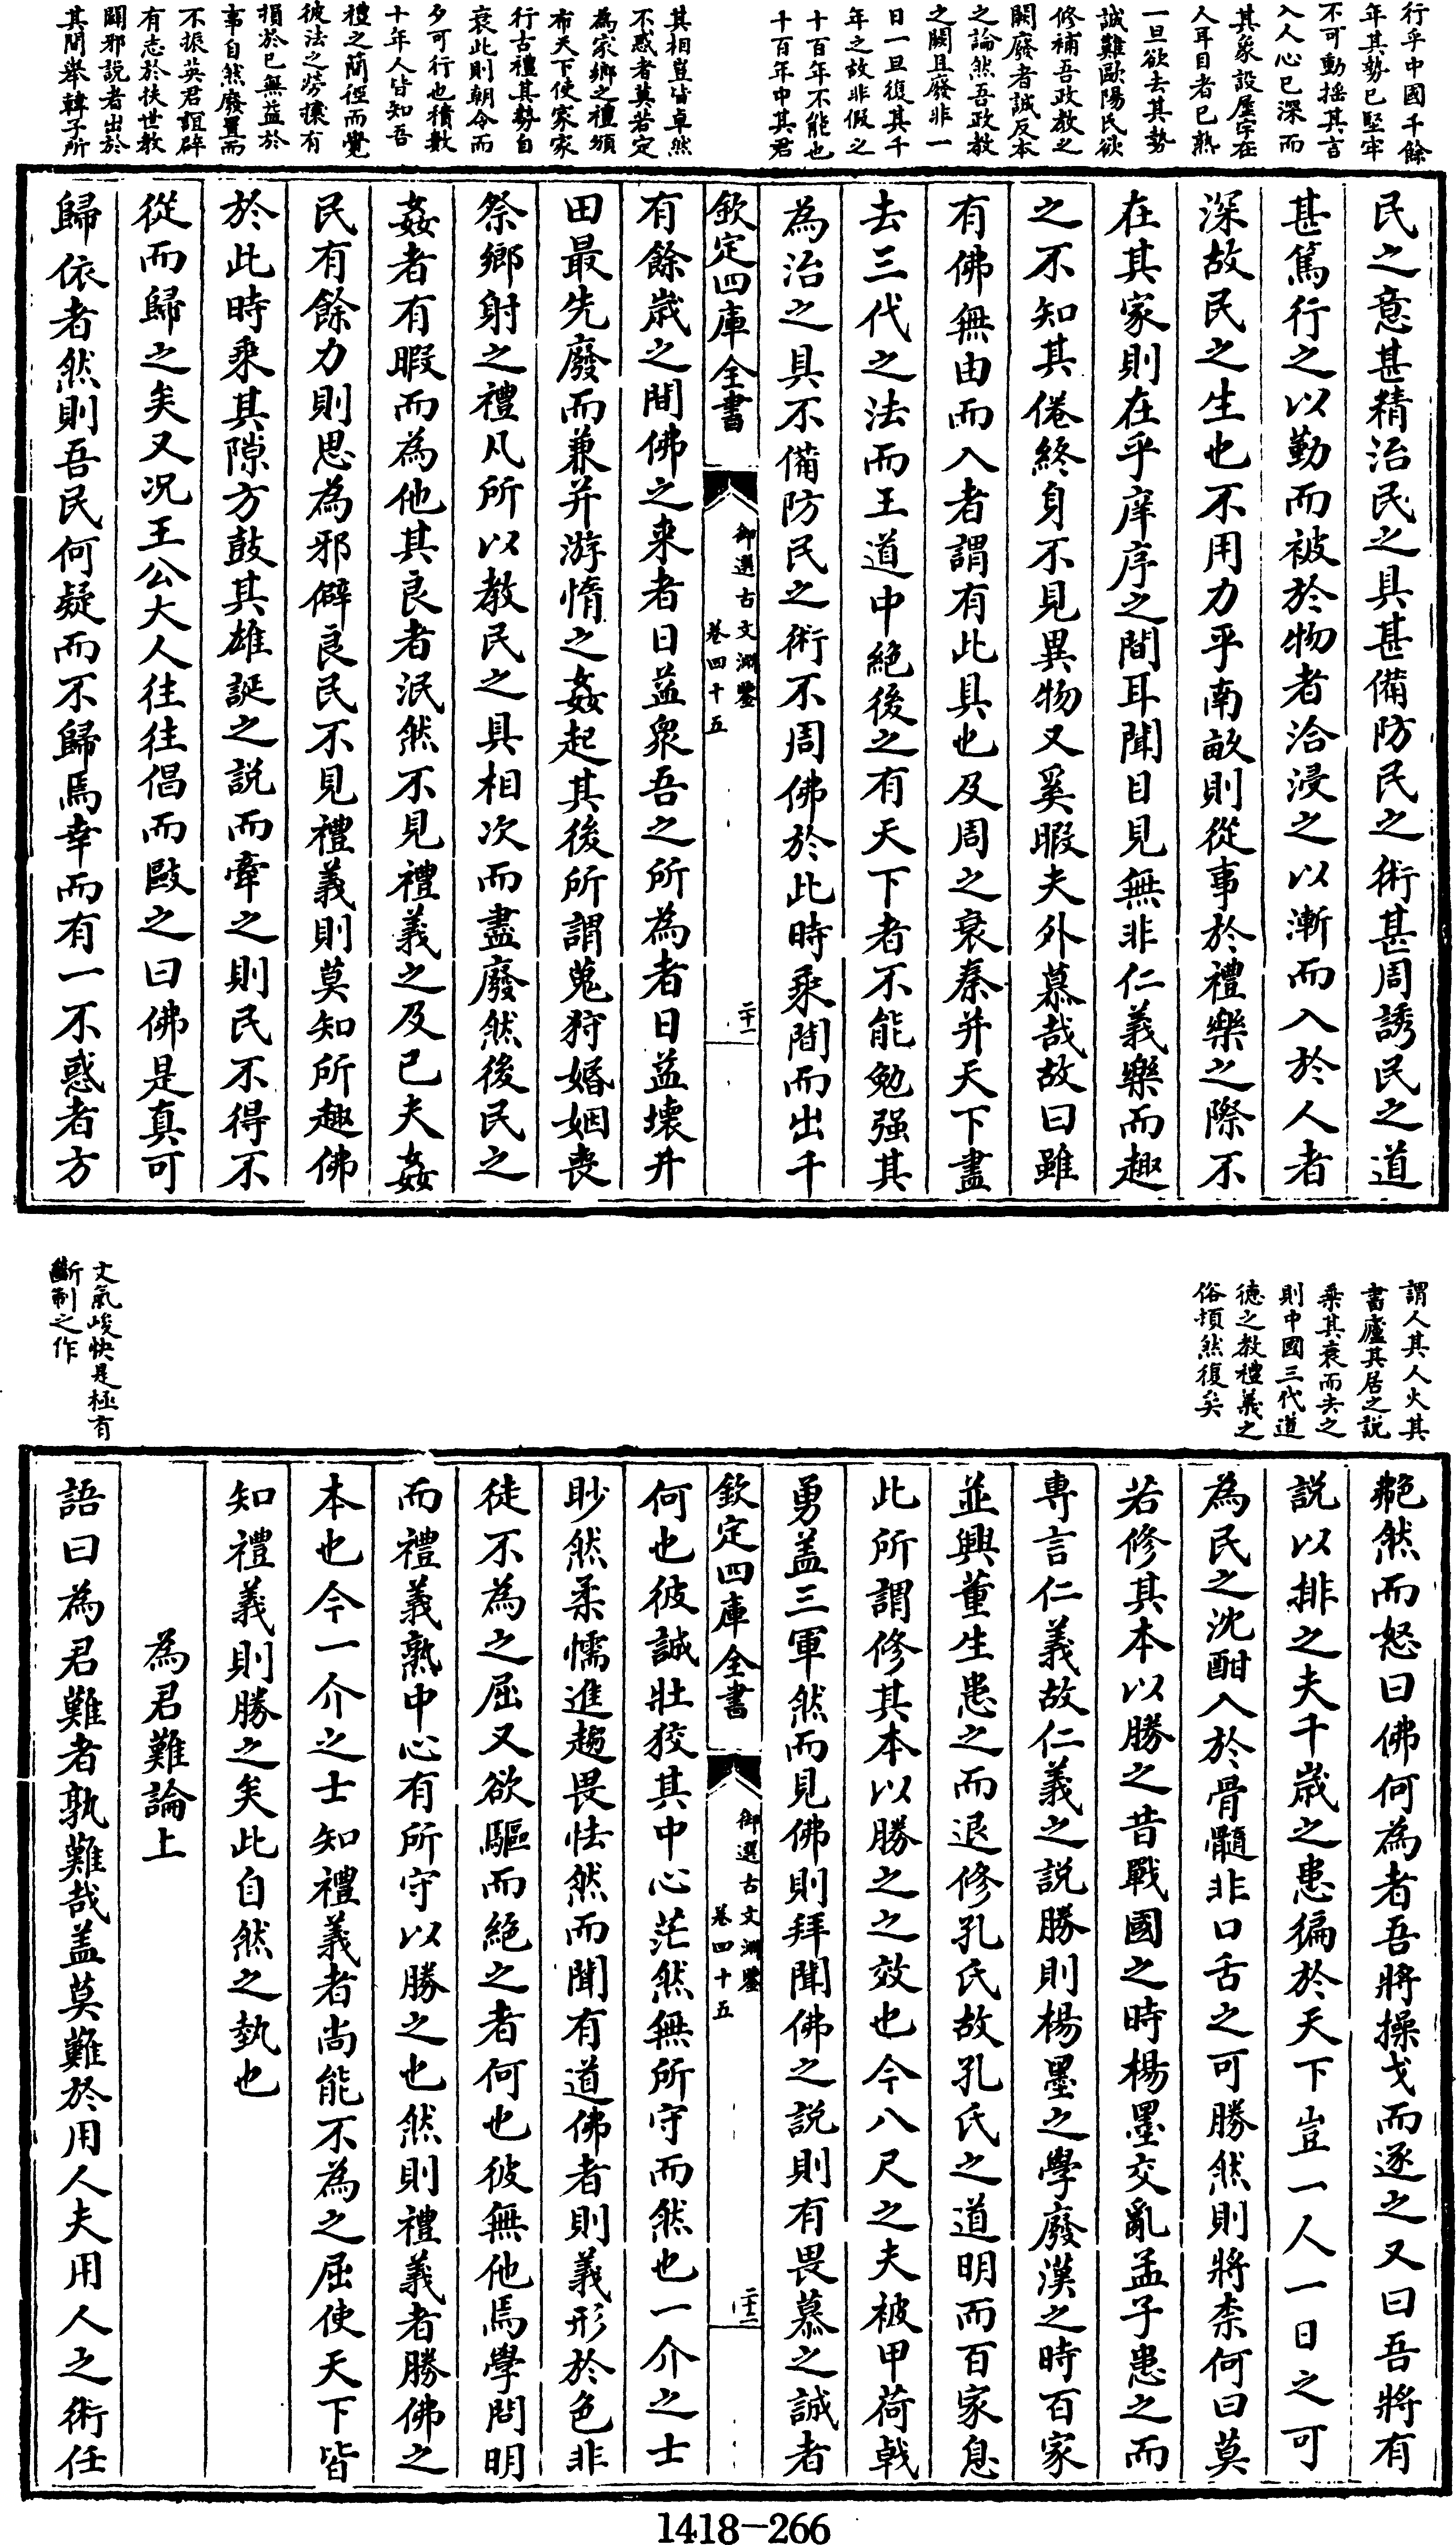 行乎中國千餘
年其勢已堅牢
不可動揺其言
入人心已深而
其象設屋宇在
人耳目者已熟
一旦欲去其勢
誠難歐陽氏欲
修補吾政教之
闕廢者誠反本
之論然吾政教
之闕且廢非一
日一旦復其千
年之故非假之
十百年不能也
千百年中其君
其相豈皆卓然
不惑者莫若定
為家鄉之禮頒
布天下使家家
行古禮其勢自
衰此則朝令而
夕可行也積數
十年人皆知吾
禮之簡徑而覺
彼法之勞攘有
損於已無益於
事自然廢置而
不振英君誼辟
有志於扶世教
闢邪説者出於
其間舉韓子所
民之意甚精治民之具甚備防民之術甚周誘民之道
甚篤行之以勤而被於物者洽浸之以漸而入於人者
深故民之生也不用力乎南畝則從事於禮樂之際不
在其家則在乎庠序之間耳聞目見無非仁義樂而趣
之不知其倦終身不見異物又奚暇夫外慕哉故曰雖
有佛無由而入者謂有此具也及周之衰秦并天下盡
去三代之法而王道中絶後之有天下者不能勉强其
為治之具不備防民之術不周佛於此時乘間而出千
欽定四庫全書
御選古文淵鑒
卷四十五
二十一
有餘歳之間佛之来者日益衆吾之所為者日益壊井
田最先廢而兼并游惰之姦起其後所謂蒐狩婚姻喪
祭鄉射之禮凡所以教民之具相次而盡廢然後民之
姦者有暇而為他其良者泯然不見禮義之及已夫姦
民有餘力則思為邪僻良民不見禮義則莫知所趣佛
於此時乘其隙方鼓其雄誕之説而牽之則民不得不
從而歸之矣又况王公大人往往倡而敺之曰佛是真可
歸依者然則吾民何疑而不歸焉幸而有一不惑者方
謂人其人火其
書廬其居之説
乘其衰而去之
則中國三代道
徳之教禮義之
俗頓然復矣
文氣峻快是極有
斷制之作
艴然而怒曰佛何為者吾將操戈而逐之又曰吾將有
説以排之夫千歳之患徧於天下豈一人一日之可
為民之沈酣入於骨髓非口舌之可勝然則將柰何曰莫
若修其本以勝之昔戰國之時楊墨交亂孟子患之而
専言仁義故仁義之説勝則楊墨之學廢漢之時百家
並興董生患之而退修孔氏故孔氏之道明而百家息
此所謂修其本以勝之之效也今八尺之夫被甲荷戟
勇盖三軍然而見佛則拜聞佛之説則有畏慕之誠者
欽定四庫全書
御選古文淵鑒
卷四十五
二十二
何也彼誠壯狡其中心茫然無所守而然也一介之士
眇然柔懦進趨畏怯然而聞有道佛者則義形於色非
徒不為之屈又欲驅而絶之者何也彼無他焉學問明
而禮義熟中心有所守以勝之也然則禮義者勝佛之
本也今一介之士知禮義者尚能不為之屈使天下皆
知禮義則勝之矣此自然之埶也
為君難論上
語曰為君難者孰難哉盖莫難於用人夫用人之術任
1418-266